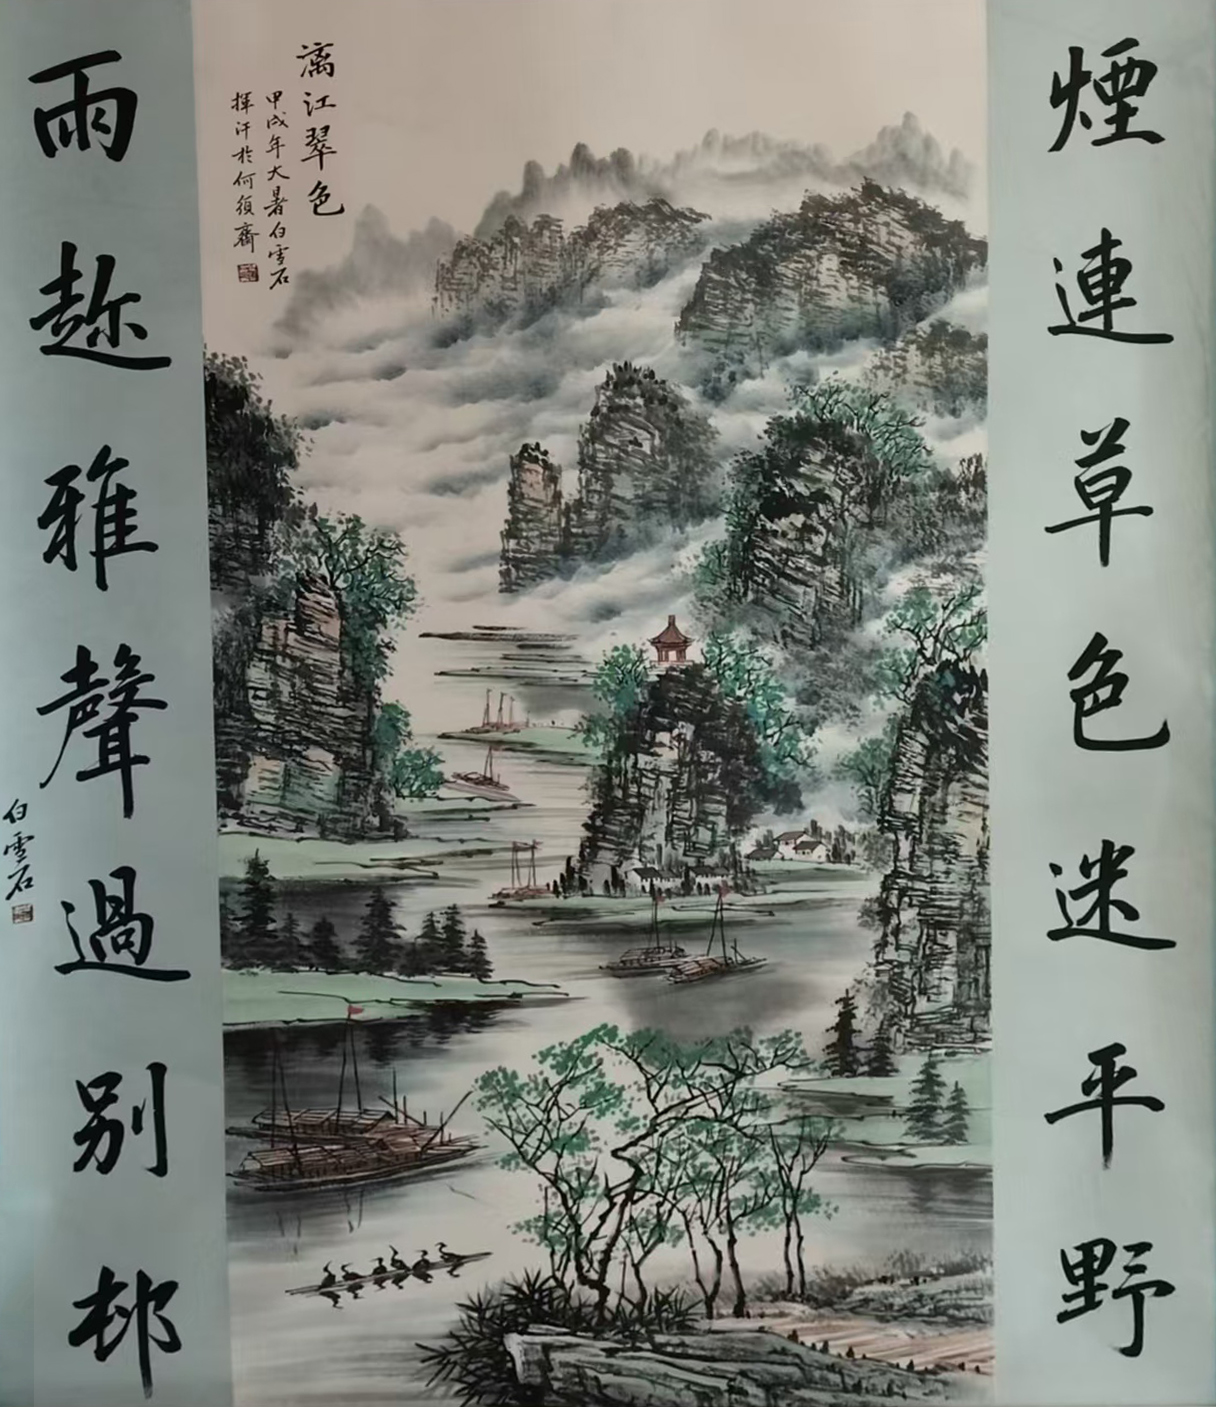 煙連草色迷平野
漓江翠色
甲戌年大暑白雪石
揮汗於何須齋
雨趂雅聲過别邨
白雪石